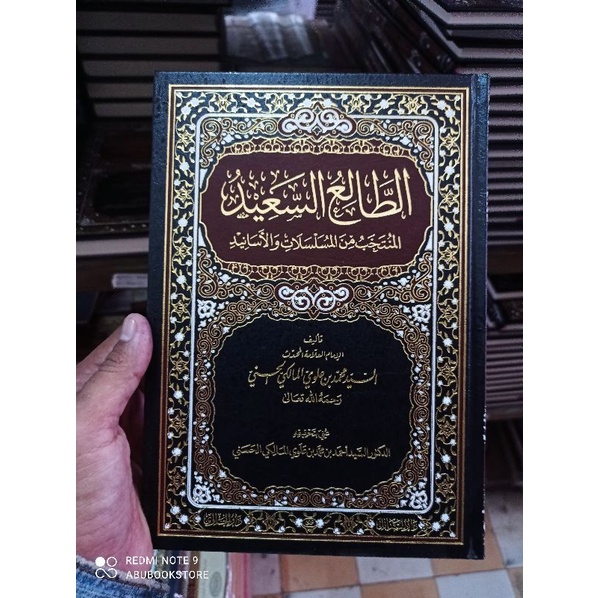 الطالع السعيد
المنتخب من المسلسلات والأسانيد
تأليف
الإمام العلامة المحدث
السيد محمد بن علوي المالكي الحسني
رحمه الله تعالى
عني بتحقيقه
الدكتور السيد أحمد بن محمد بن علوي المالكي الحسني
REDMI NOTE 9
ABUBOOKSTORE